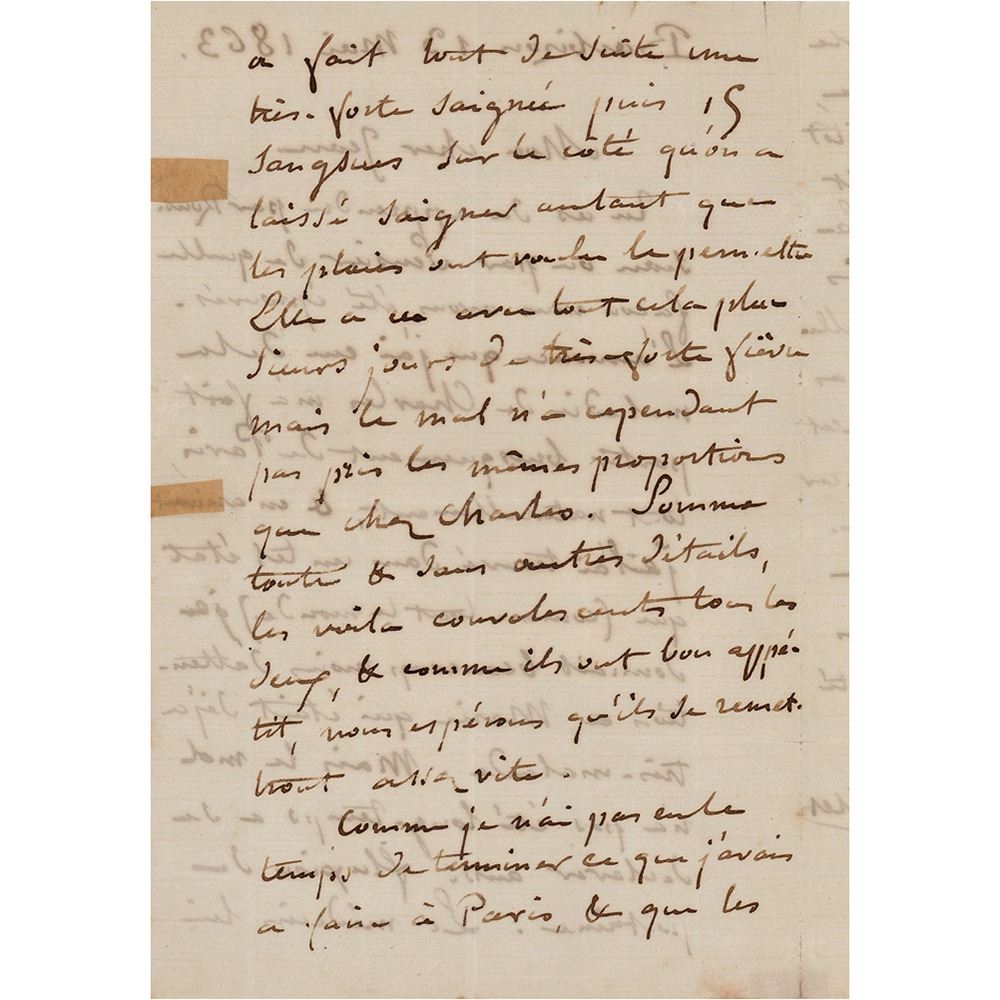 a fait tout de suite une
très-forte saignée puis 15
sangsues sur le côté qu'on a
laissé saigner autant que
les plaies ont voulu le permettre
Elle a eu avec tout cela plu
sieurs jours de très-forte fièvre
mais le mal n'a cependant
pas pris les mêmes proportions
que chez Charles. Somme
toute & sans autres détails,
les voila convalescents tous les
deux, & comme ils ont bon appé-
tit, nous espérons qu'ils se remet-
tront assez vite.
Comme je n'ai pas eu le
temps de terminer ce que j'avais
a faire à Paris, & que les